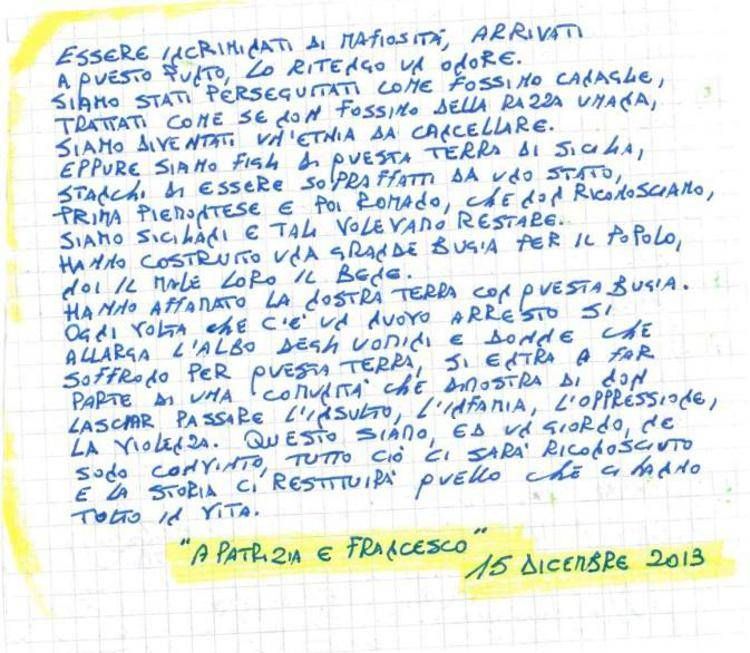 ESSERE INCRIMINATI DI MAFIOSITÀ, ARRIVATI
A QUESTO PUNTO, LO RITENGO UN ONORE.
SIAMO STATI PERSEGUITATI COME FOSSIMO CANAGLIE,
TRATTATI COME SE NON FOSSIMO DELLA RAZZA UMANA,
SIAMO DIVENTATI UN'ETNIA DA CANCELLARE.
EPPURE SIAMO FIGLI DI QUESTA TERRA DI SICILIA,
STANCHI DI ESSERE SOPRAFFATTI DA UNO STATO,
PRIMA PIEMONTESE E POI ROMANO, CHE NON RICONOSCIAMO,
SIAMO SICILIANI E TALI VOLEVAMO RESTARE.
HANNO COSTRUITO UNA GRANDE BUGIA PER IL POPOLO,
NOI IL MALE LORO IL BENE.
HANNO AFFAMATO LA NOSTRA TERRA CON QUESTA BUGIA.
OGNI VOLTA CHE C'E' UN NUOVO ARRESTO SI
ALLARGA L'ALBO DEGLI UOMINI E DONNE CHE
SOFFRONO PER QUESTA TERRA, SI ENTRA A FAR
PARTE DI UNA COMUNITA' CHE DIMOSTRA DI NON
LASCIAR PASSARE L'INSULTO, L'INFAMIA, L'OPPRESSIONE,
LA VIOLENZA. QUESTO SIAMO, ED UN GIORNO, NE
SONO CONVINTO, TUTTO CIÒ CI SARÀ RICONOSCIUTO
E LA STORIA CI RESTITUIRÀ QUELLO CHE CI HANNO
TOLTO IN VITA.
"A PATRIZIA E FRANCESCO"
15 DICEMBRE 2013